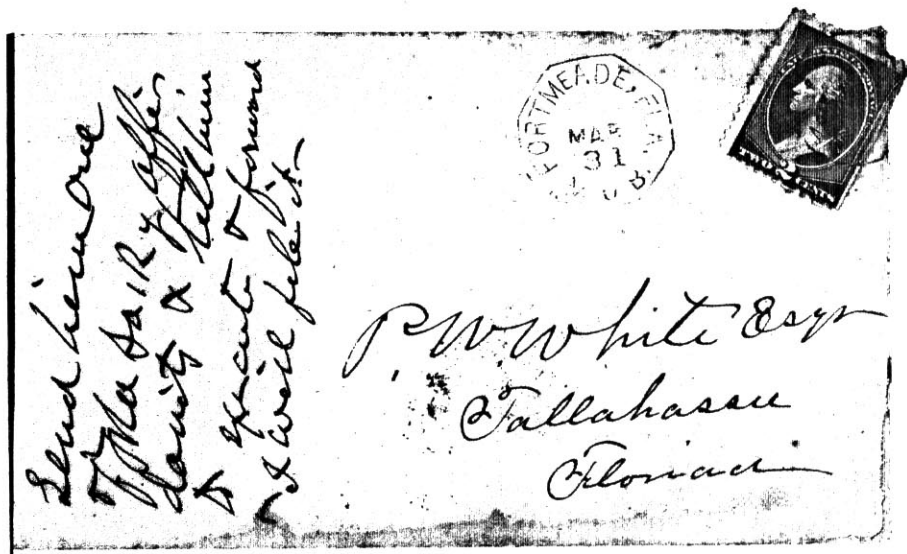 Send him one
of the Sa & Ry affi-
davits & tell him
to execute & forward
& I will file it
FORT MEADE, FLA.
MAR
31
TWO 2 CENTS
P. W. White Esqr
Tallahassee
Florida